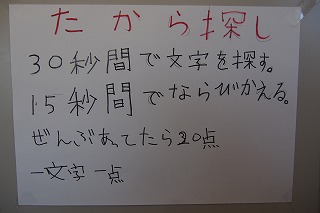 たから探し
30秒間で文字を探す。
15秒間でならびかえる。
ぜんぶあってたら20点
一文字一点